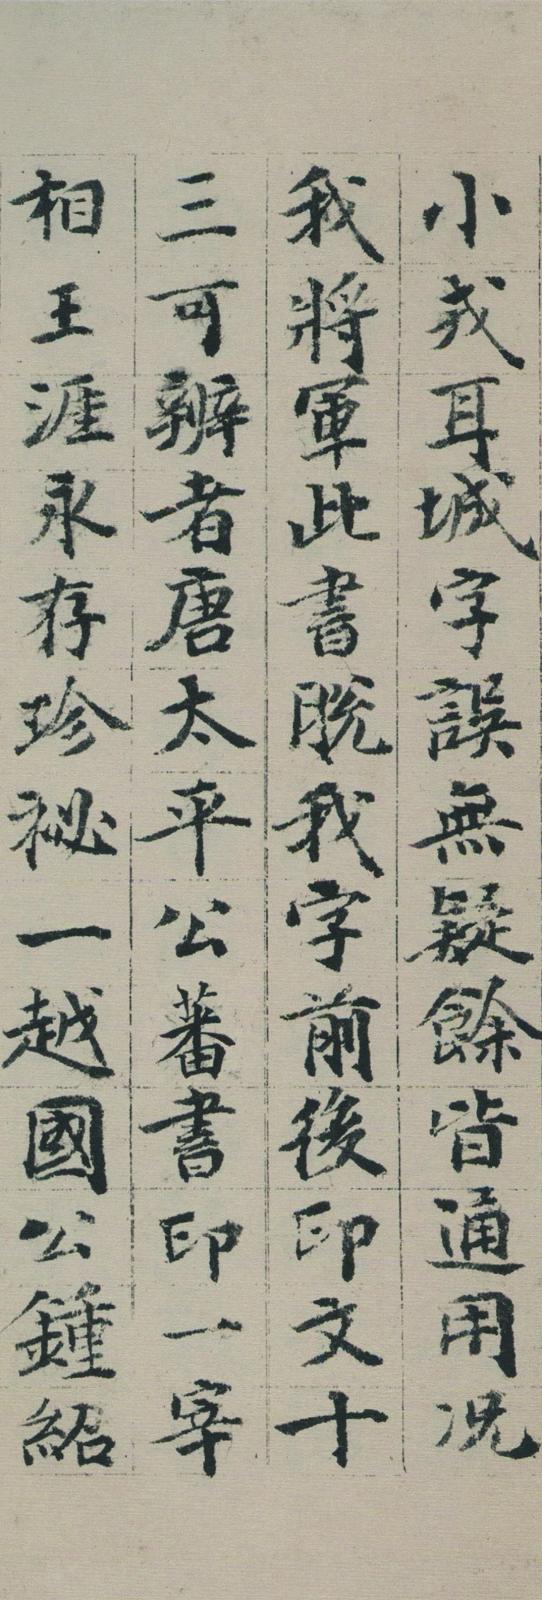 小戎耳城字誤無疑餘皆通用况
我將軍此書脱我字前後印文十
三可辨者唐太平公蕃書印一宰
相王涯永存珍祕一越國公鍾紹